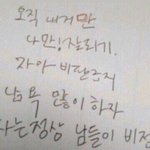 오직 내거만
나만! 잘되기.
자아 비대증
남 욕 많이 하자
나는 정상 남들이 비정